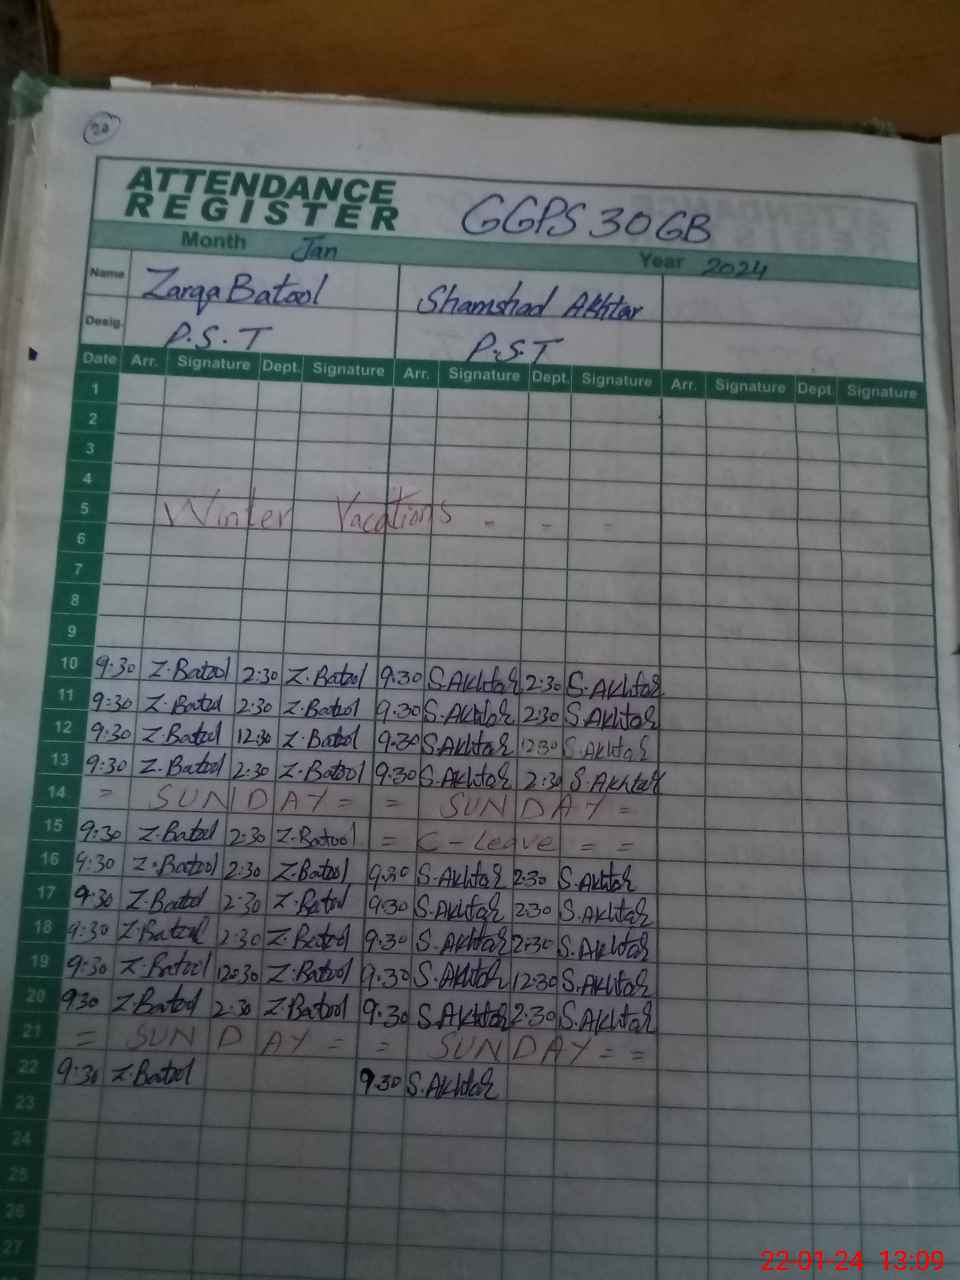 20
ATTENDANCE
REGISTER GGPS 30 GB
Month Jan Year 2024
Name Zarqa Batool Shamshad Akhtar
Desig. P.S.T P.S.T
Date Arr. Signature Dept. Signature Arr. Signature Dept. Signature Arr. Signature Dept. Signature
1
2
3
4
5 Winter Vacations - - -
6
7
8
9
10 9:30 Z.Batool 2:30 Z.Batool 9:30 S.Akhtar 2:30 S.Akhtar
11 9:30 Z.Batool 2:30 Z.Batool 9:30 S.Akhtar 2:30 S.Akhtar
12 9:30 Z.Batool 12:30 Z.Batool 9:30 S.Akhtar 12:30 S.Akhtar
13 9:30 Z.Batool 2:30 Z.Batool 9:30 S.Akhtar 2:30 S.Akhtar
14 = SUNDAY = = SUNDAY =
15 9:30 Z.Batool 2:30 Z.Batool = C-Leave = =
16 9:30 Z.Batool 2:30 Z.Batool 9:30 S.Akhtar 2:30 S.Akhtar
17 9:30 Z.Batool 2:30 Z.Batool 9:30 S.Akhtar 2:30 S.Akhtar
18 9:30 Z.Batool 2:30 Z.Batool 9:30 S.Akhtar 2:30 S.Akhtar
19 9:30 Z.Batool 12:30 Z.Batool 9:30 S.Akhtar 12:30 S.Akhtar
20 9:30 Z.Batool 2:30 Z.Batool 9:30 S.Akhtar 2:30 S.Akhtar
21 = SUNDAY = = SUNDAY = =
22 9:30 Z.Batool 9:30 S.Akhtar
23
24
25
26
27
22-01-24 13:09